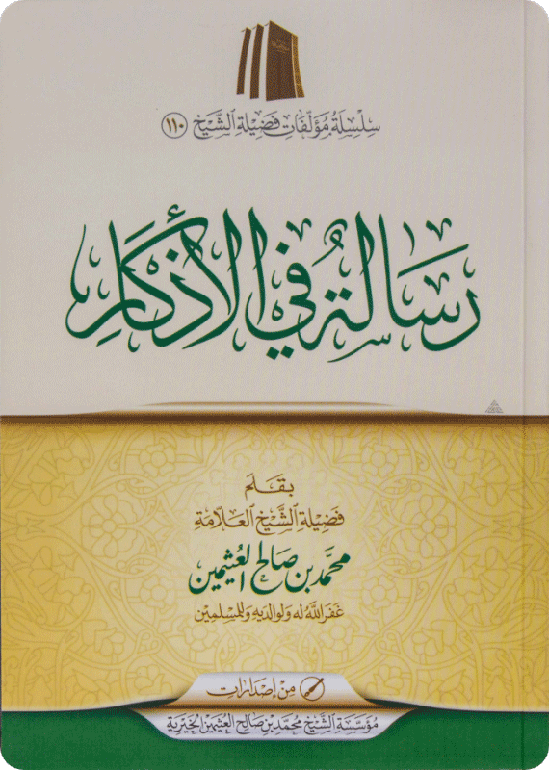 سِلْسِلَةُ مُؤَلَّفَاتِ فَضِيلَةِ الشَّيْخِ (١١٠)
رِسَالَةٌ فِي الْأَذْكَارِ
بِقَلَمِ
فَضِيلَةِ الشَّيْخِ العَلَّامَةِ
محمَّد بن صَالح العُثَيمين
غَفَرَ اللَّهُ لَهُ وَلِوَالِدَيْهِ وَلِلْمُسْلِمِين
مِنْ إِصْدَارَات
مُؤَسَّسَةِ الشَّيْخِ مُحَمَّد بْنِ صَالِحٍ العُثَيْمِين الخَيْرِيَّةِ